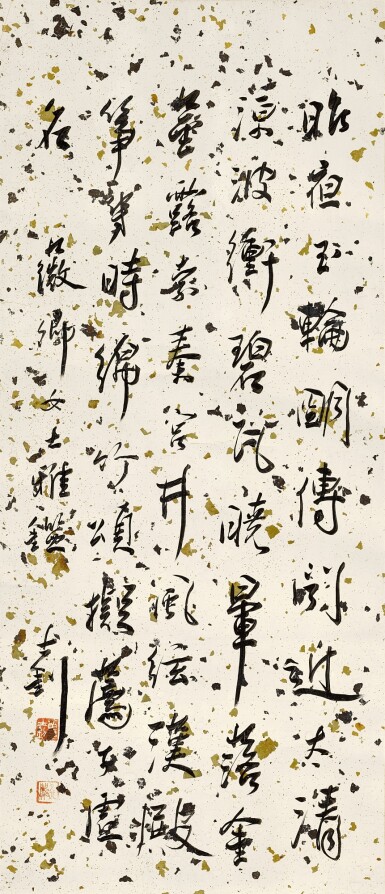 昨夜玉輪明傳聞近太清
涼波衝碧瓦曉暈落金
莖露索秦宮井風弦漢殿
箏幾時綿竹頌擬薦子虛
名 薇卿女士雅鑒 士釗